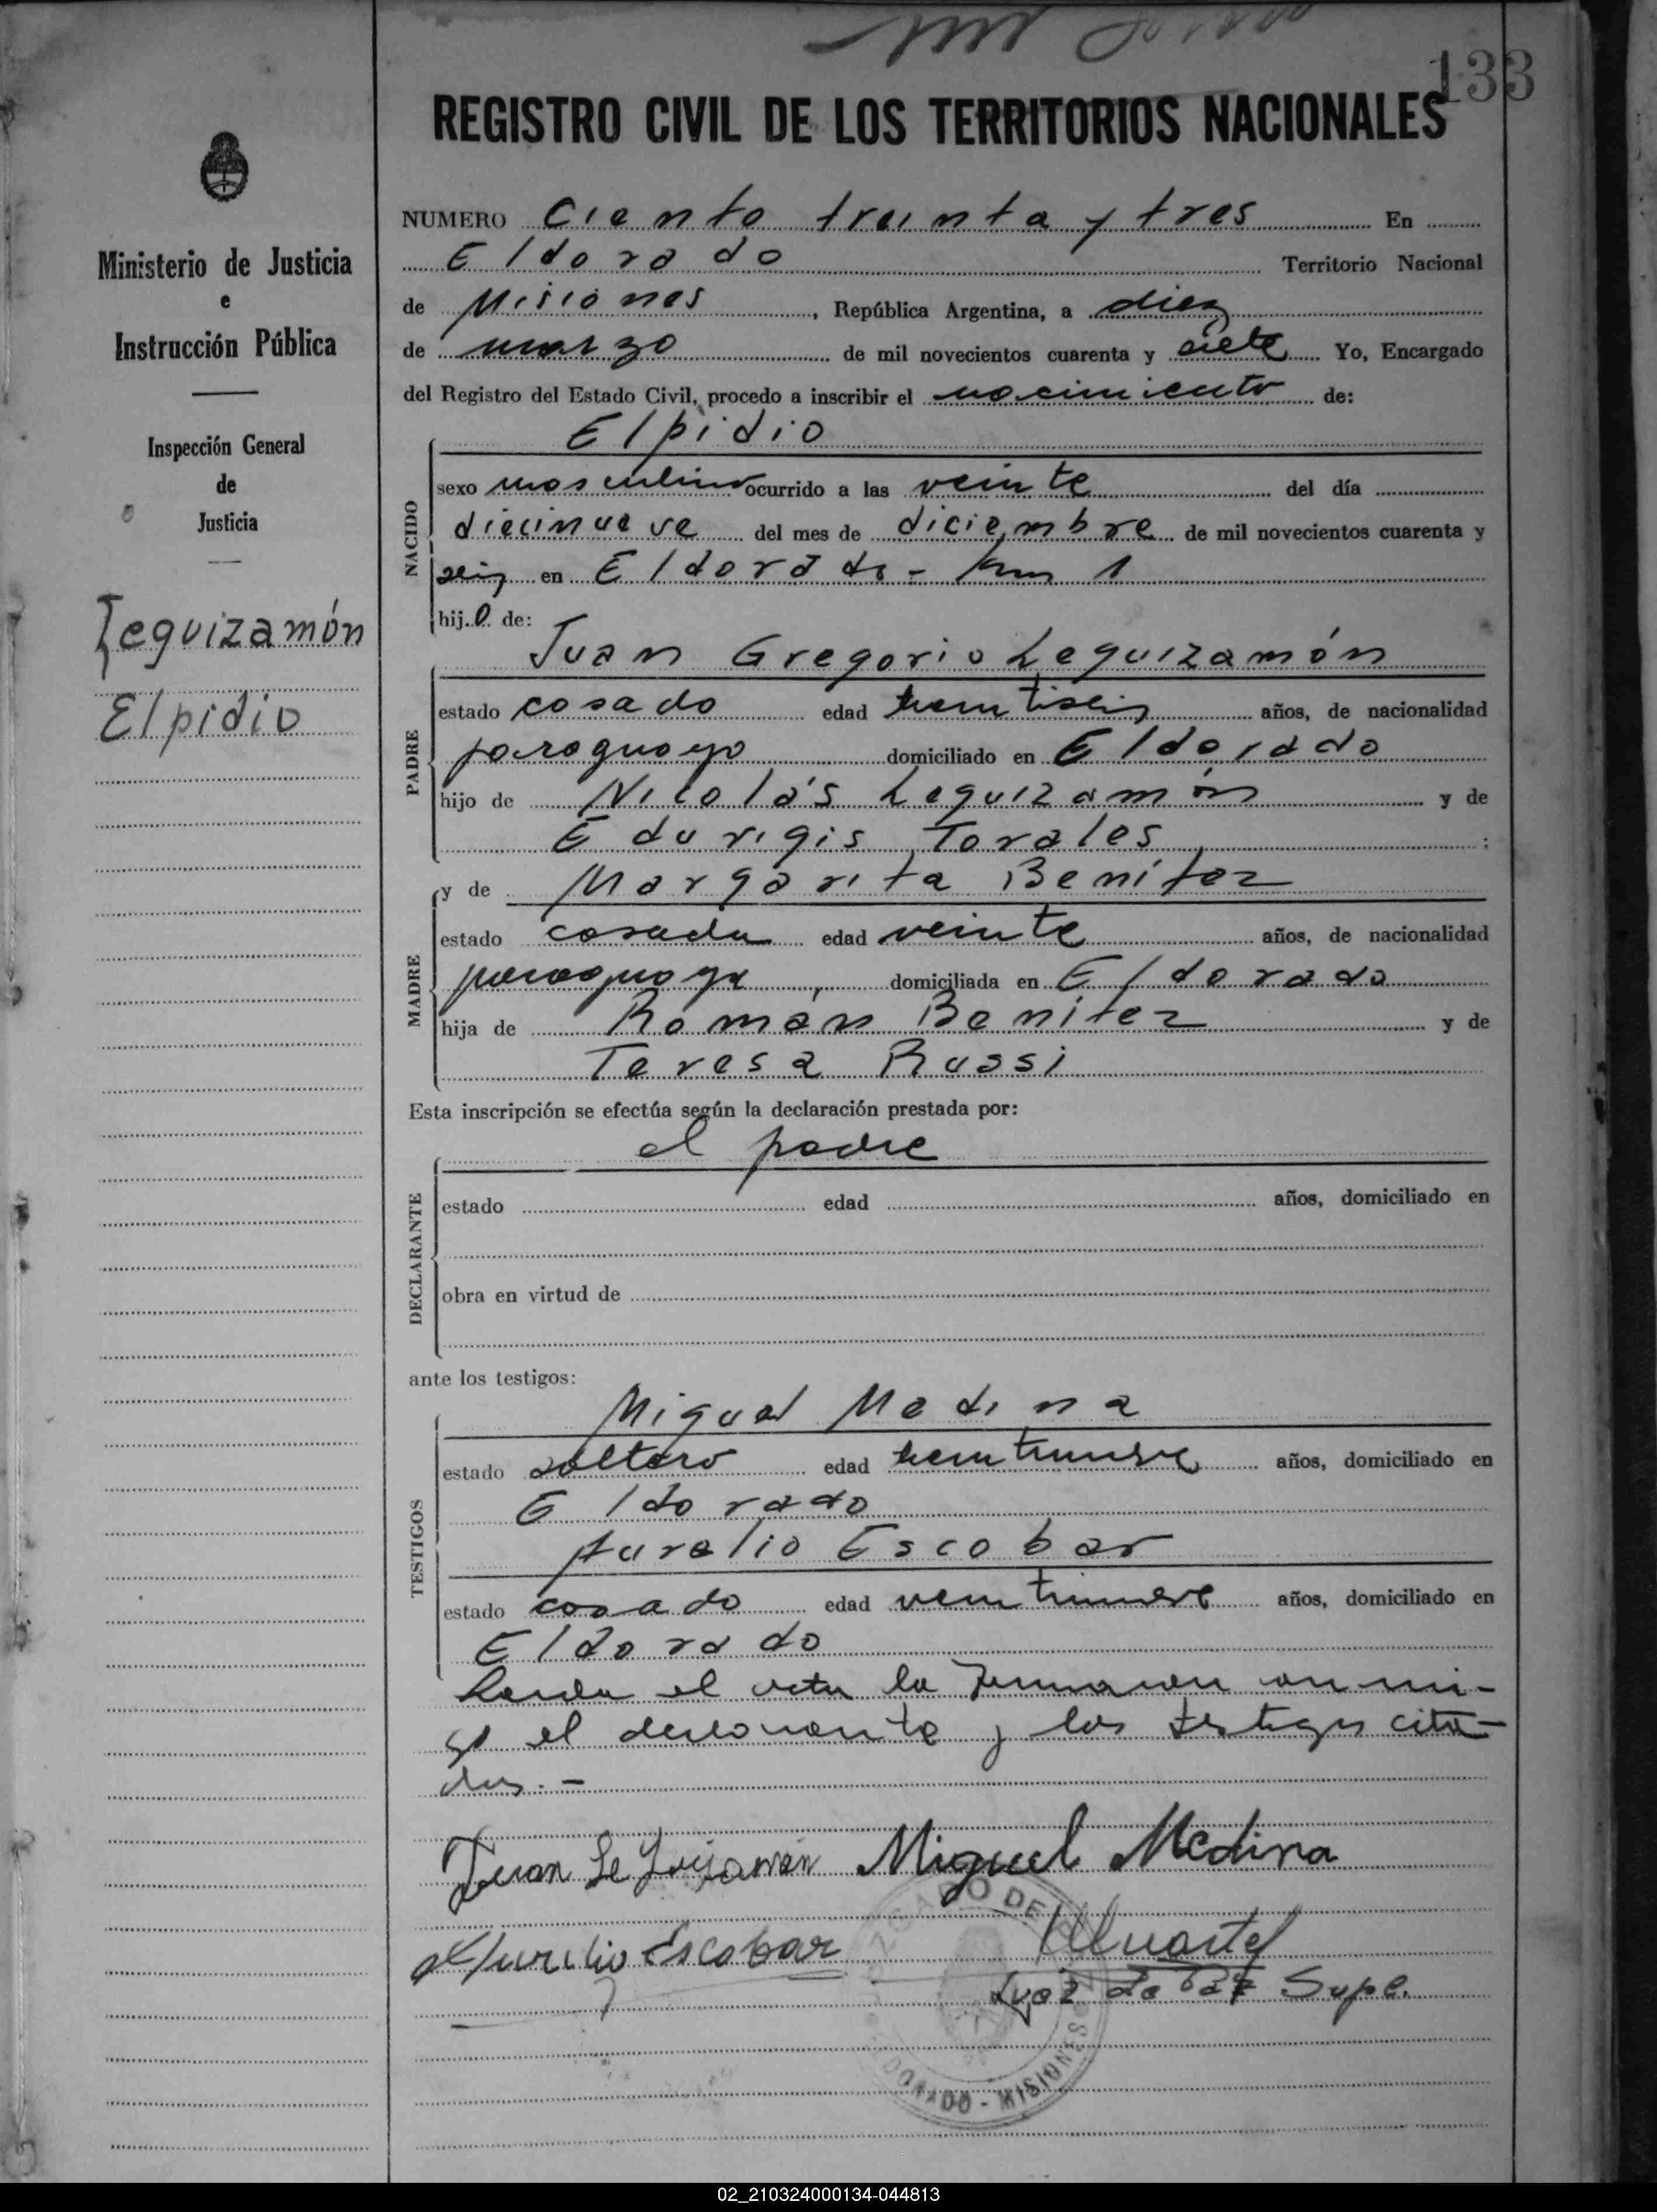 133
REGISTRO CIVIL DE LOS TERRITORIOS NACIONALES
Ministerio de Justicia
e
Instrucción Pública
Inspección General
de
Justicia
Leguizamón
Elpidio
NUMERO Ciento treinta y tres En
Eldorado Territorio Nacional
de Misiones, República Argentina, a diez
de marzo de mil novecientos cuarenta y siete Yo, Encargado
del Registro del Estado Civil, procedo a inscribir el nacimiento de:
Elpidio
NACIDO
sexo masculino ocurrido a las veinte del día
diecinueve del mes de diciembre de mil novecientos cuarenta y
seis en Eldorado - Km 1
hijo de:
Juan Gregorio Leguizamón
PADRE
estado casado edad treintiseis años, de nacionalidad
paraguayo domiciliado en Eldorado
hijo de Nicolás Leguizamón y de
Eduvigis Torales;
y de Margarita Benítez
MADRE
estado casada edad veinte años, de nacionalidad
paraguaya, domiciliada en Eldorado
hija de Román Benítez y de
Teresa Bussi
Esta inscripción se efectúa según la declaración prestada por:
el padre
DECLARANTE
estado edad años, domiciliado en
obra en virtud de
ante los testigos:
Miguel Medina
TESTIGOS
estado soltero edad treintinueve años, domiciliado en
Eldorado
Aurelio Escobar
estado casado edad veintinueve años, domiciliado en
Eldorado
Leída el acta la firmaron conmi-
go el declarante y los testigos cita-
dos.-
Juan Leguisamón Miguel Medina
Aurelio Escobar
Juez de Paz Supe.
JUZGADO DE PAZ
ELDORADO - MISIONES
02_210324000134-044813